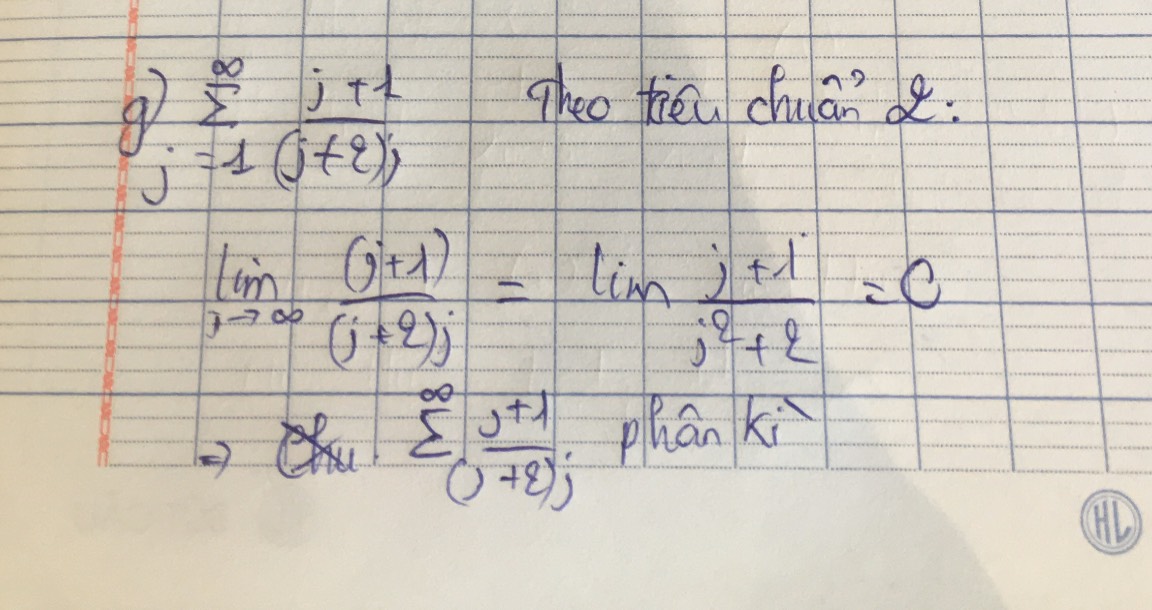 g) ∑_{j=1}^{∞} (j+1)/((j+2)j) Theo tiêu chuẩn 2:
lim_{j→∞} (j+1)/((j+2)j) = lim (j+1)/(j²+2) = 0
⇒ ∑^{∞} (j+1)/((j+2)j) phân kì
HL